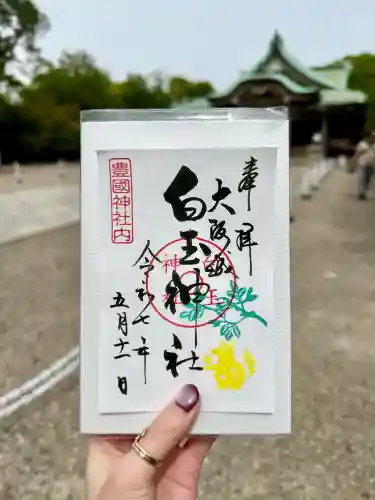 奉拝
大阪城
白玉神社
豊國神社内
白玉
神社
令和七年
五月十一日